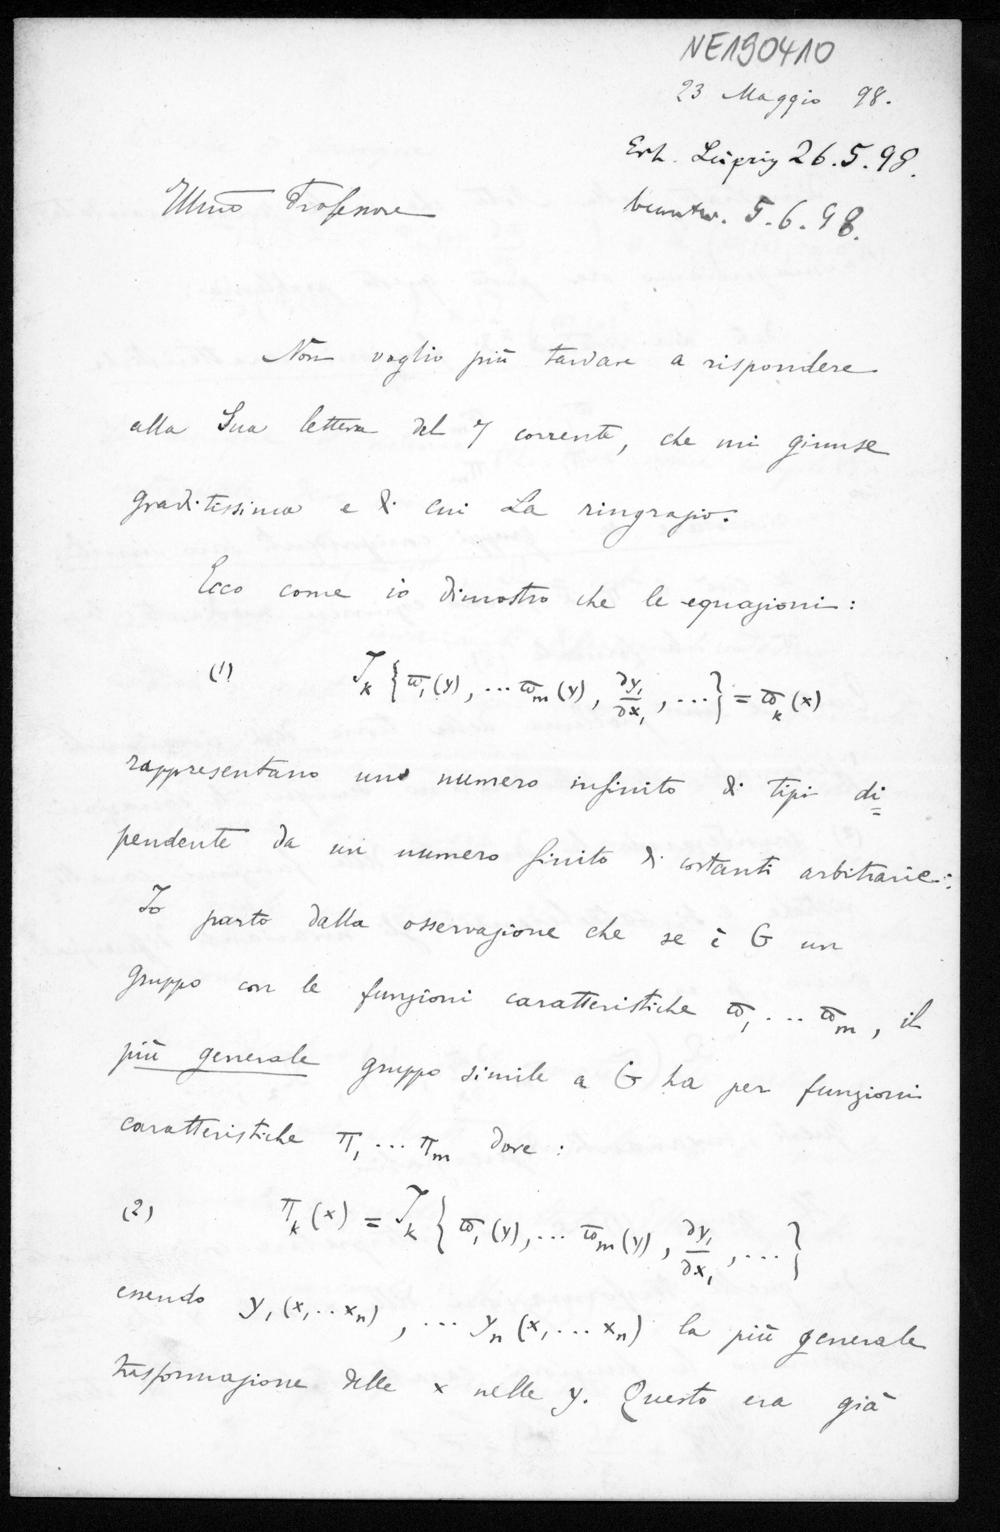 NE190410
23 Maggio 98.
Erh. Leipzig 26.5.98.
beantw. 5.6.98.
Illmo Professore
Non voglio più tardare a rispondere
alla Sua lettera del 7 corrente, che mi giunse
graditissima e di cui La ringrazio.
Ecco come io dimostro che le equazioni:
(1) J_k {ϖ_1(y), ... ϖ_m(y), ∂y_1/∂x_1, ...} = ϖ_k(x)
rappresentano un numero infinito di tipi di
pendente da un numero finito di costanti arbitrarie:
Io parto dalla osservazione che se è G un
gruppo con le funzioni caratteristiche ϖ_1 ... ϖ_m, il
più generale gruppo simile a G ha per funzioni
caratteristiche π_1 ... π_m dove:
(2) π_k(x) = J_k {ϖ_1(y), ... ϖ_m(y), ∂y_1/∂x_1, ...}
essendo y_1(x_1 .. x_n), ... y_n(x_1 ... x_n) la più generale
trasformazione delle x nelle y. Questo era già